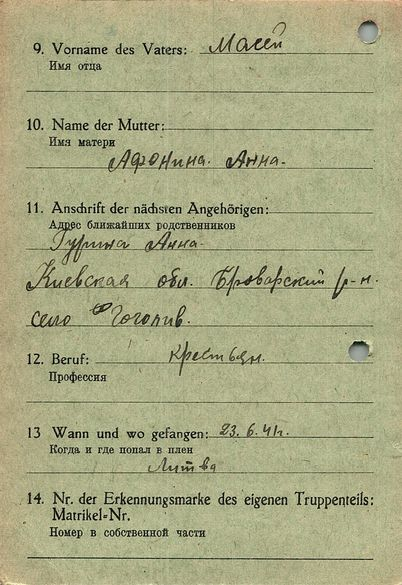 9. Vorname des Vaters: Масей
Имя отца
10. Name der Mutter:
Имя матери
Афонина. Анна.
11. Anschrift der nächsten Angehörigen:
Адрес ближайших родственников
Гурина Анна.
Киевская обл. Броварский р-н.
село Гоголив.
12. Beruf: крестьян.
Профессия
13 Wann und wo gefangen: 23. 6. 41г.
Когда и где попал в плен
Литва
14. Nr. der Erkennungsmarke des eigenen Truppenteils:
Matrikel-Nr.
Номер в собственной части